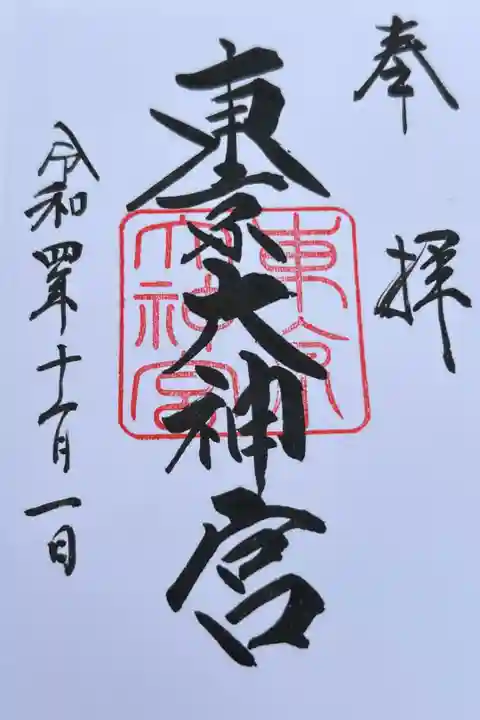 奉拝
東京大神宮
東京大神宮
令和四年十一月一日